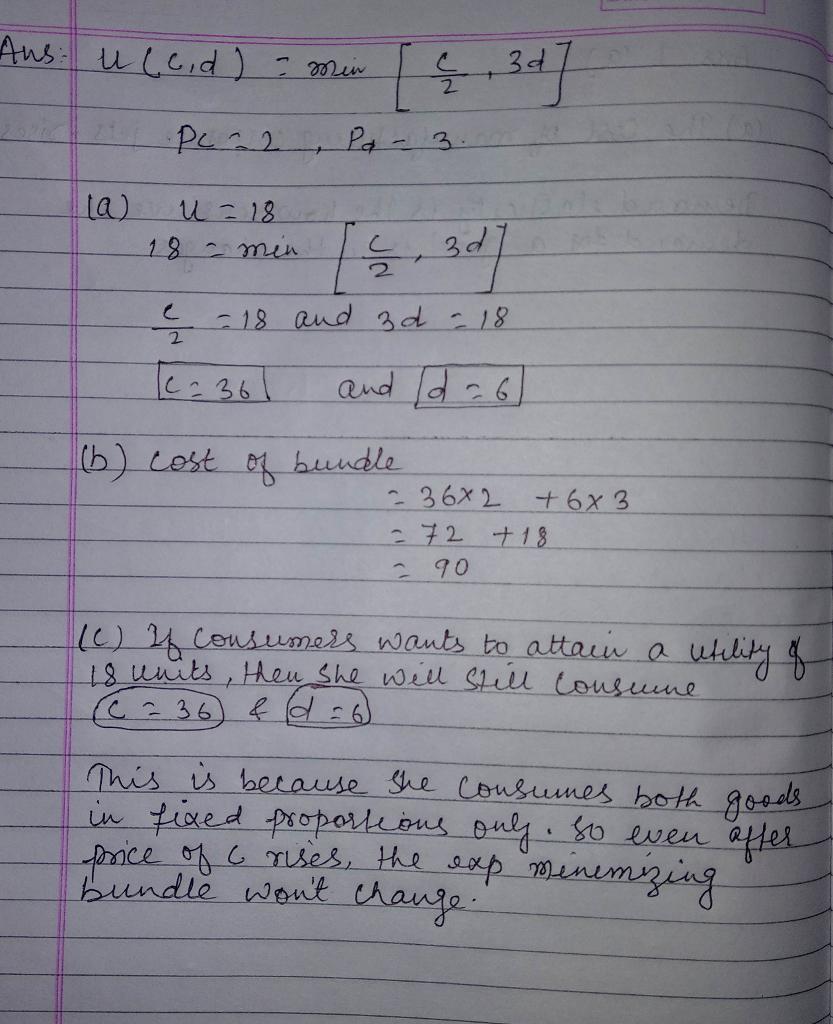 Ans: u(c,d) = min [ c/2 , 3d ]
Pc = 2 , Pd = 3.
(a) u = 18
18 = min [ c/2 , 3d ]
c/2 = 18 and 3d = 18
c = 36 and d = 6
(b) cost of bundle
= 36x2 + 6x3
= 72 + 18
= 90
(c) If consumers wants to attain a utility of
18 units, then she will still consume
c = 36 & d = 6
This is because she consumes both goods
in fixed proportions only. So even after
price of c rises, the exp minimizing
bundle won't change.